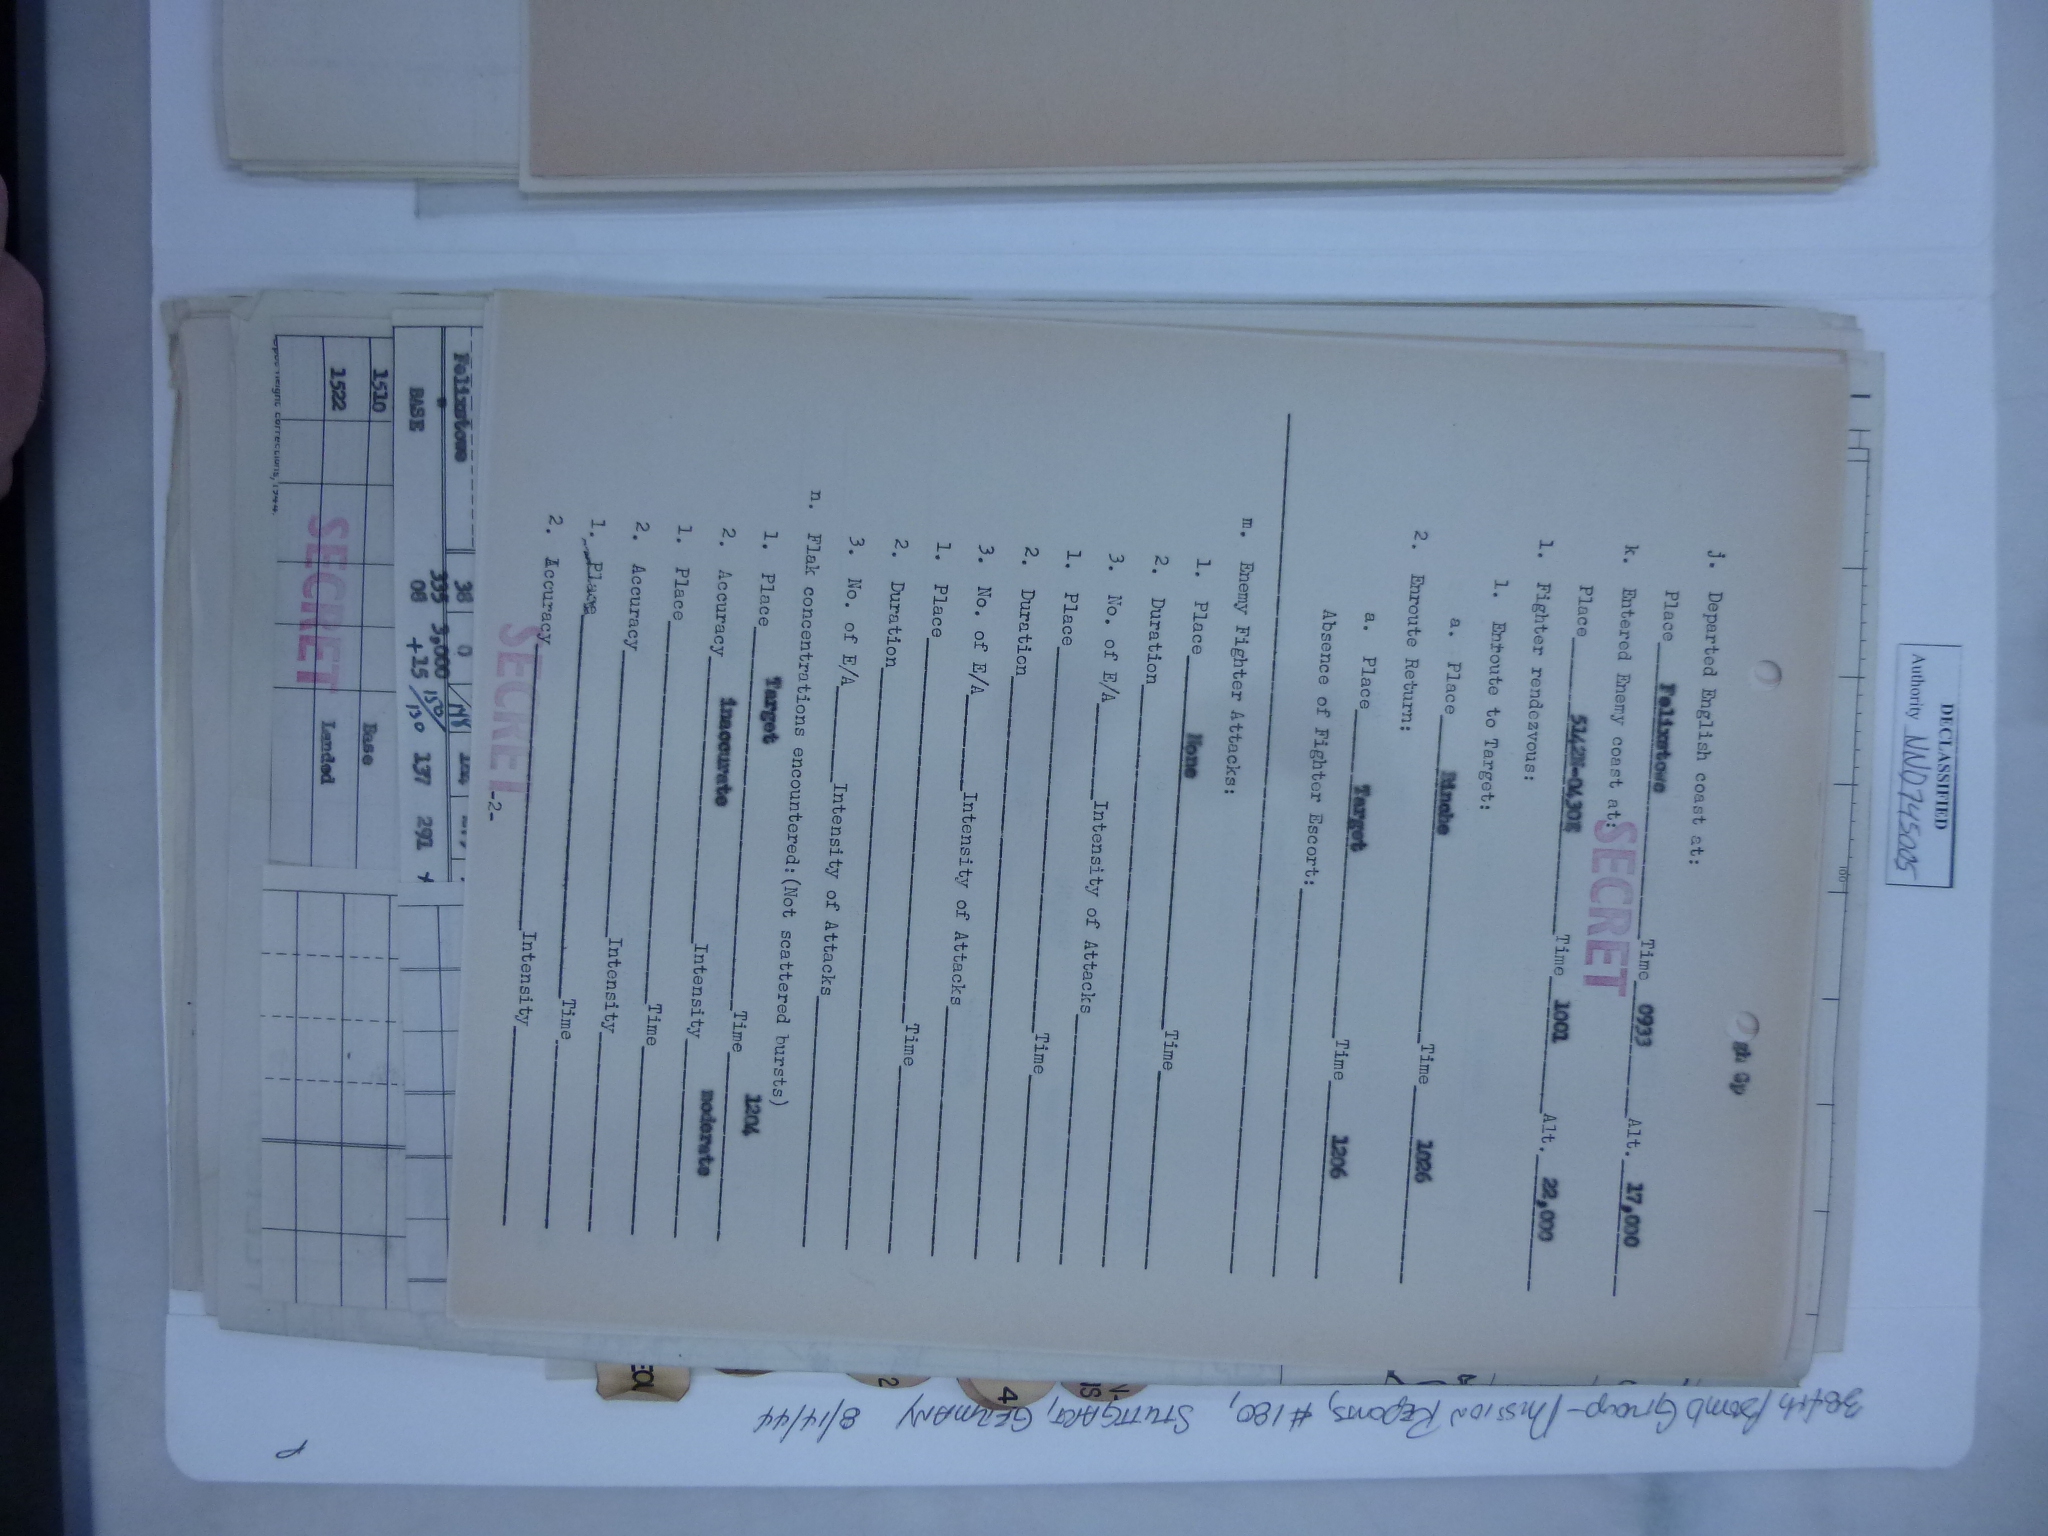 DECLASSIFIED
Authority NND 745005
Gp
j. Departed English coast at:
Place Felixstowe Time 0933 Alt. 17,000
SECRET
k. Entered Enemy coast at:
Place 5142N-0430E Time 1001 Alt. 22,000
1. Fighter rendezvous:
1. Enroute to Target:
a. Place Binche Time 1026
2. Enroute Return:
a. Place Target Time 1206
Absence of Fighter Escort:
m. Enemy Fighter Attacks:
1. Place None
2. Duration Time
3. No. of E/A Intensity of Attacks
1. Place
2. Duration Time
3. No. of E/A Intensity of Attacks
1. Place
2. Duration Time
3. No. of E/A Intensity of Attacks
n. Flak concentrations encountered:(Not scattered bursts)
1. Place Target Time 1204
2. Accuracy inaccurate Intensity moderate
1. Place Time
2. Accuracy Intensity
1. Place Time
2. Accuracy Intensity
SECRET
-2-
Felixstowe 38 0
335 3,000
BASE 08 +15 150/130 137 291
1510 Base
1522 Landed
SECRET
corrections,
384th Bomb Group - Mission Reports, #180, STUTTGART, GERMANY 8/14/44
2
4
P